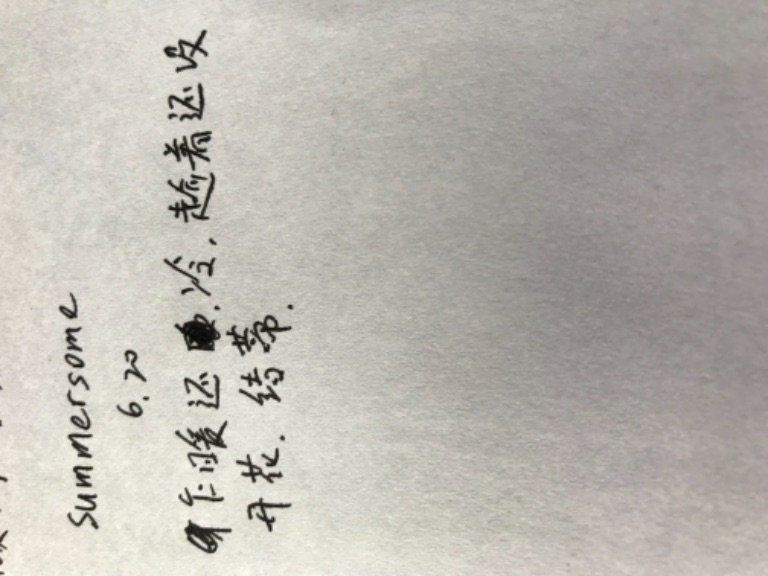 Summersome
6.20
乍暖还冷，趁着还没
开花．结蒂．